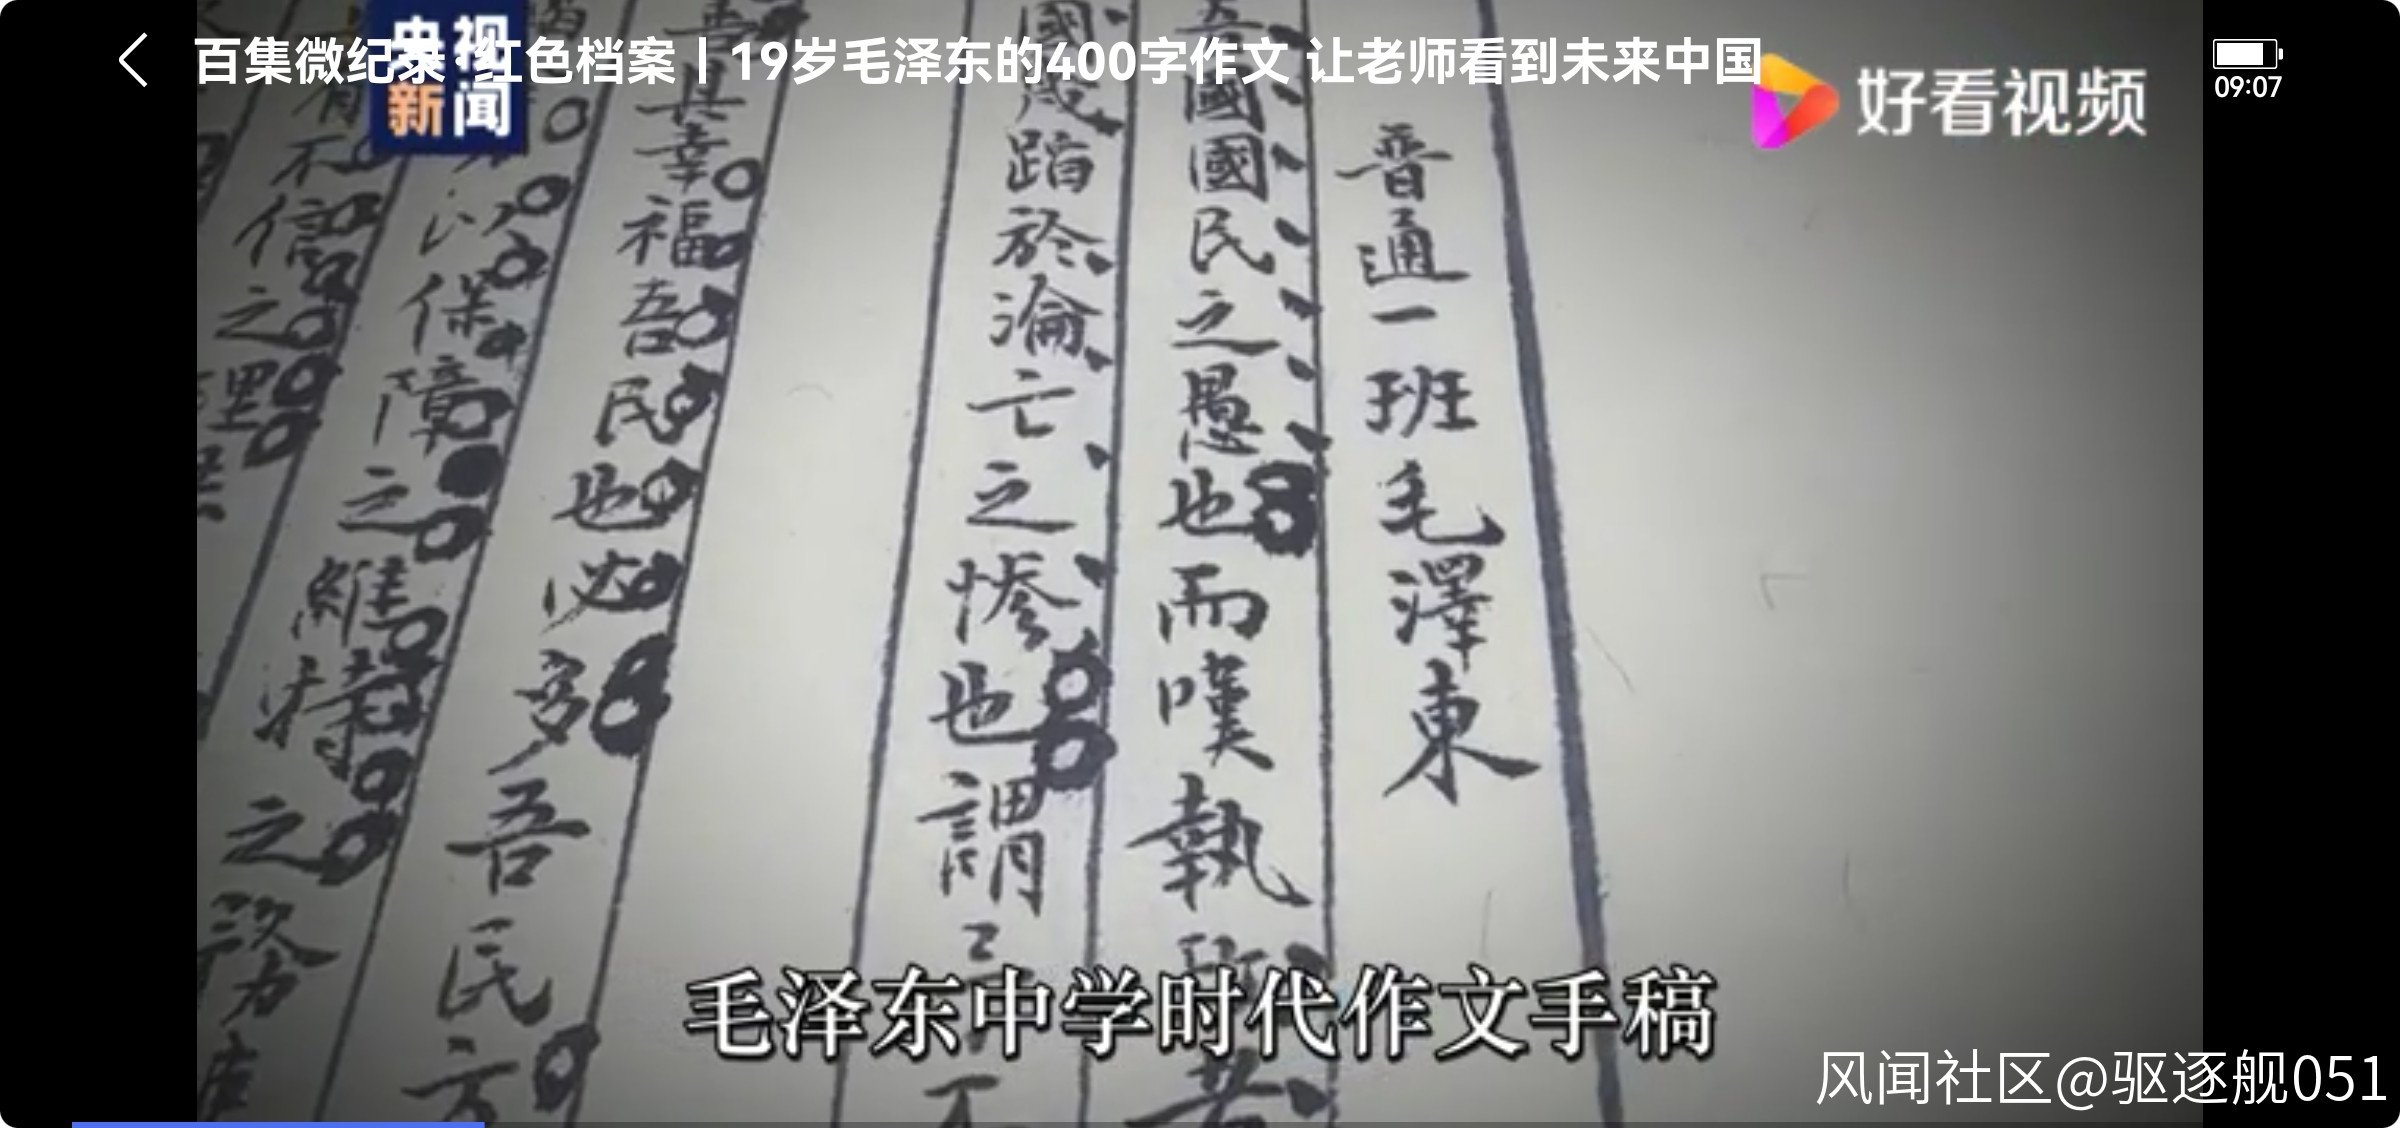 百集微纪录·红色档案丨19岁毛泽东的400字作文 让老师看到未来中国
09:07
央视
新闻
好看视频
普通一班毛澤東
吾國國民之愚也而嘆執
國成蹈於淪亡之慘也謂
其幸福吾民也必
吾民方
以保障之維持之
不信之
毛泽东中学时代作文手稿
风闻社区@驱逐舰051